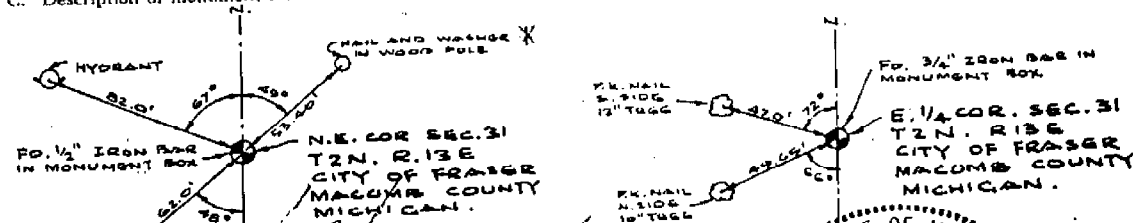 C. Description of monument
N.
NAIL AND WASHER
IN WOOD POLE
HYDRANT
82.0'
67°
49°
FD. 1/2" IRON BAR
IN MONUMENT BOX
N.E. COR SEC. 31
T2N. R.13E
CITY OF FRASER
MACOMB COUNTY
MICHIGAN.
62.0'
48°
N.
FD. 3/4" IRON BAR IN
MONUMENT BOX
P.K. NAIL
S. SIDE
12" TREE
47.0'
72°
E. 1/4 COR. SEC. 31
T2N. R13E
CITY OF FRASER
MACOMB COUNTY
MICHIGAN.
66°
P.K. NAIL
N. SIDE
10" TREE
OF